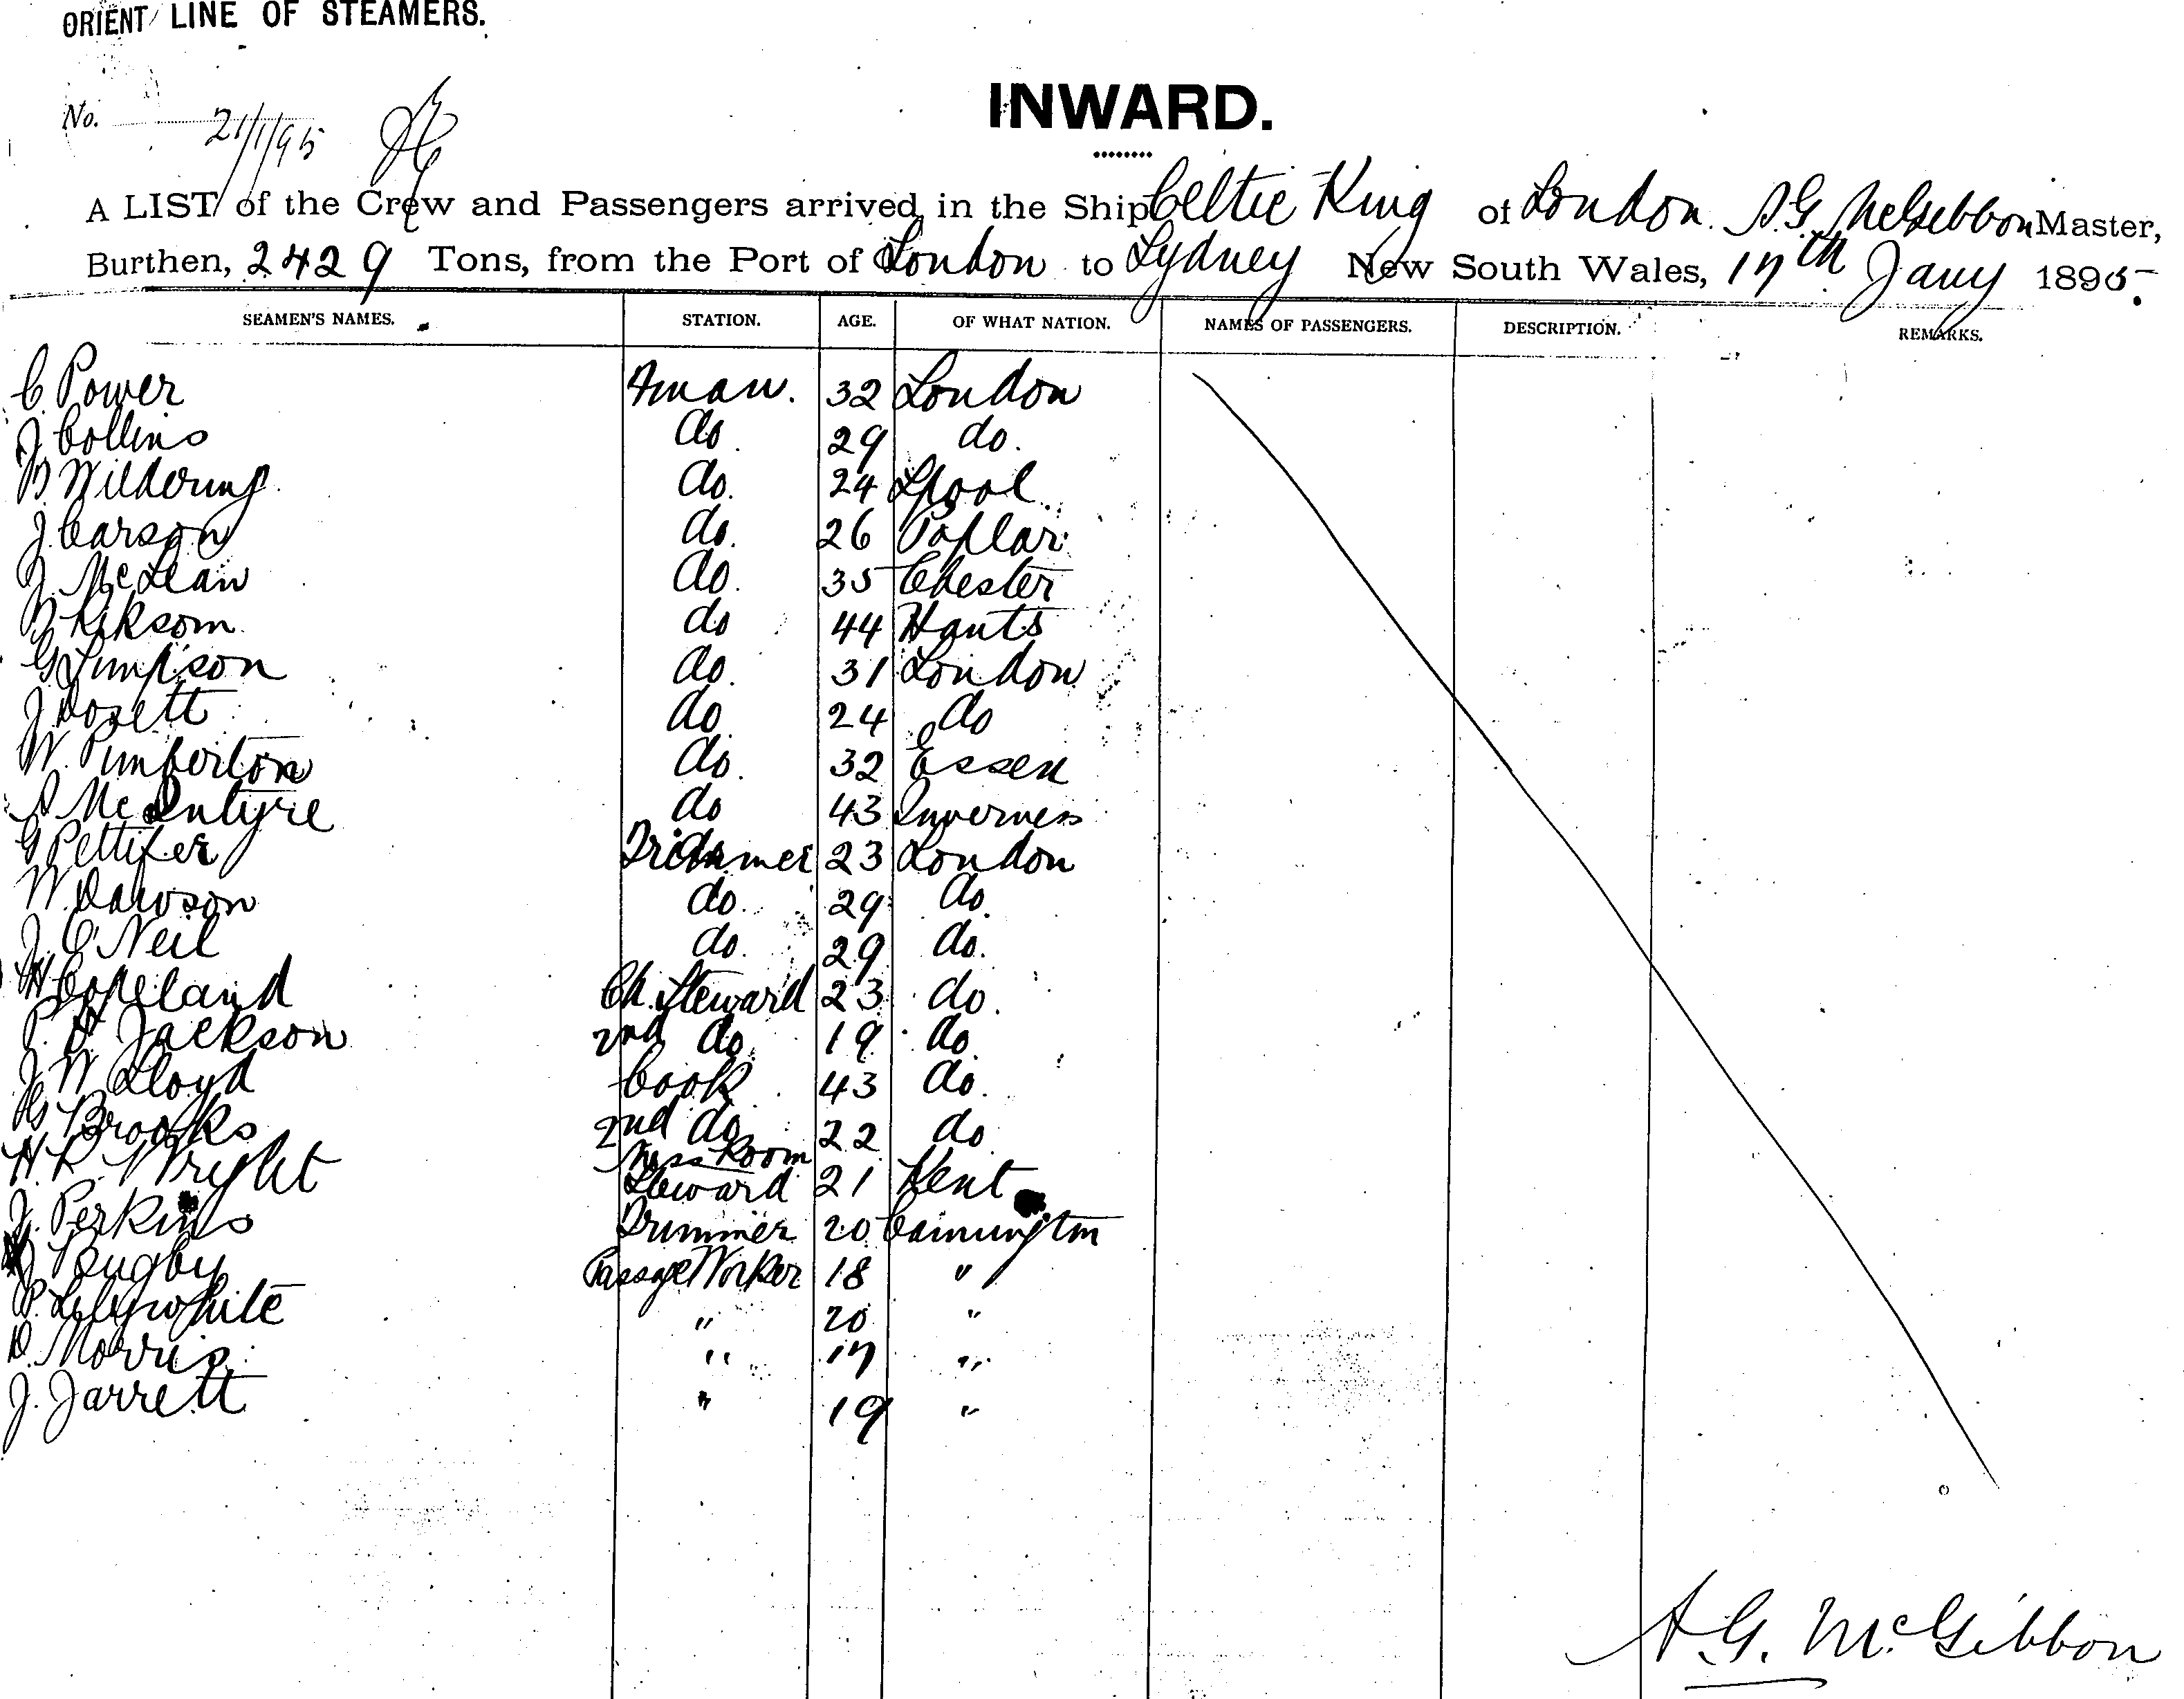 ORIENT LINE OF STEAMERS.
No. 21/1/95
INWARD.
A LIST of the Crew and Passengers arrived in the Ship Celtic King of London. A.G. McGibbon Master,
Burthen, 2429 Tons, from the Port of London to Sydney New South Wales, 17th Jany 1895.
SEAMEN'S NAMES. STATION. AGE. OF WHAT NATION. NAMES OF PASSENGERS. DESCRIPTION. REMARKS.
C. Power Fman. 32 London
J. Collins do 29 do.
do. 24 Lpool
J. Carson do. 26 Poplar
J. McLean do. 35 Chester
do 44 Hants
G Simpson do. 31 London
J. Dosett do 24 do
W. Pimberton do. 32 Essex
A McIntyre do 43 Inverness
G Pettifer Trimmer 23 London
W. Dawson do. 29 do.
J. O'Neil do. 29 do.
H Copeland Ch. Steward 23 do.
P. H. Jackson 2nd do. 19 do.
J W Lloyd Cook 43 do.
G Brooks 2nd do. 22 do
H. R. Wright Mess Room Steward 21 Kent
J. Perkins Trimmer 20
Rugby Passage Worker 18 "
P. Lillywhite " 20 "
D. Morris " 17 "
J. Jarrett " 19 "
A.G. McGibbon